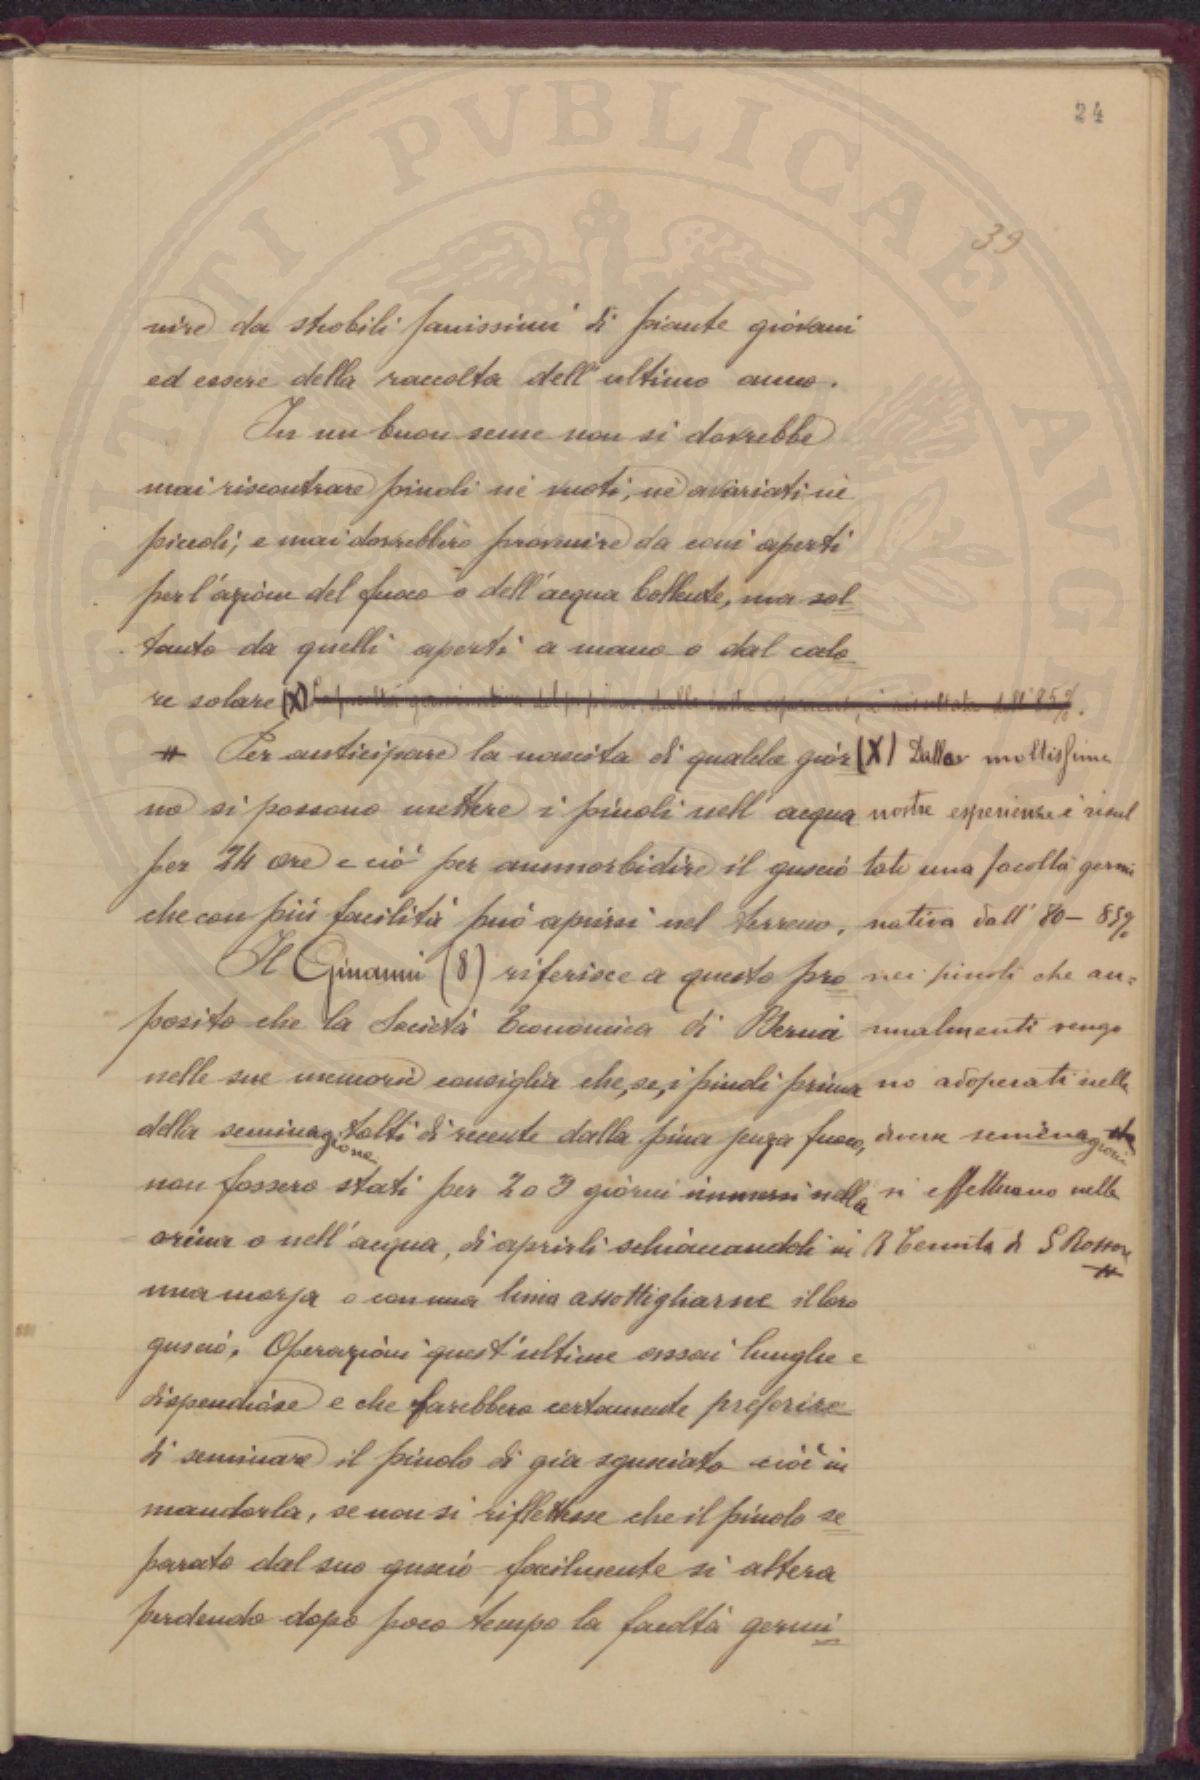 24
39
nire da strobili sanissimi di piante giovani
ed essere della raccolta dell'ultimo anno.
In un buon seme non si dovrebbe
mai riscontrare pinoli nè vuoti, nè avariati nè
piccoli; e mai dovrebbero provenire da coni aperti
per l'azione del fuoco o dell'acqua bollente, ma sol
tanto da quelli aperti a mano o dal calo
re solare (X)
# Per anticipare la nascita di qualche gior
no si possono mettere i pinoli nell'acqua
per 24 ore e ciò per ammorbidire il guscio
che con più facilità può aprirsi nel terreno.
Il Ginanni (8) riferisce a questo pro
posito che la Società Economica di Berna
nelle sue memorie consiglia che, se, i pinoli prima
della seminagione tolti di recente dalla pina senza fuoco,
non fossero stati per 2 o 3 giorni immersi nella
orina o nell'acqua, di aprirli schiacciandoli in
una morsa o con una lima assottigliarne il loro
guscio. Operazioni quest'ultime assai lunghe e
dispendiose e che farebbero certamente preferire
di seminare il pinolo di già sgusciato cioè in
mandorla, se non si riflettesse che il pinolo se
parato dal suo guscio facilmente si altera
perdendo dopo poco tempo la facoltà germi
(X) Dalle moltissime
nostre esperienze è risul
tata una facoltà germi
nativa dall' 80-85%
nei pinoli che an=
nualmente vengo
no adoperati nelle
diverse seminagioni
si effettuano nella
R Tenuta di S Rossore
#
PVBLICAE